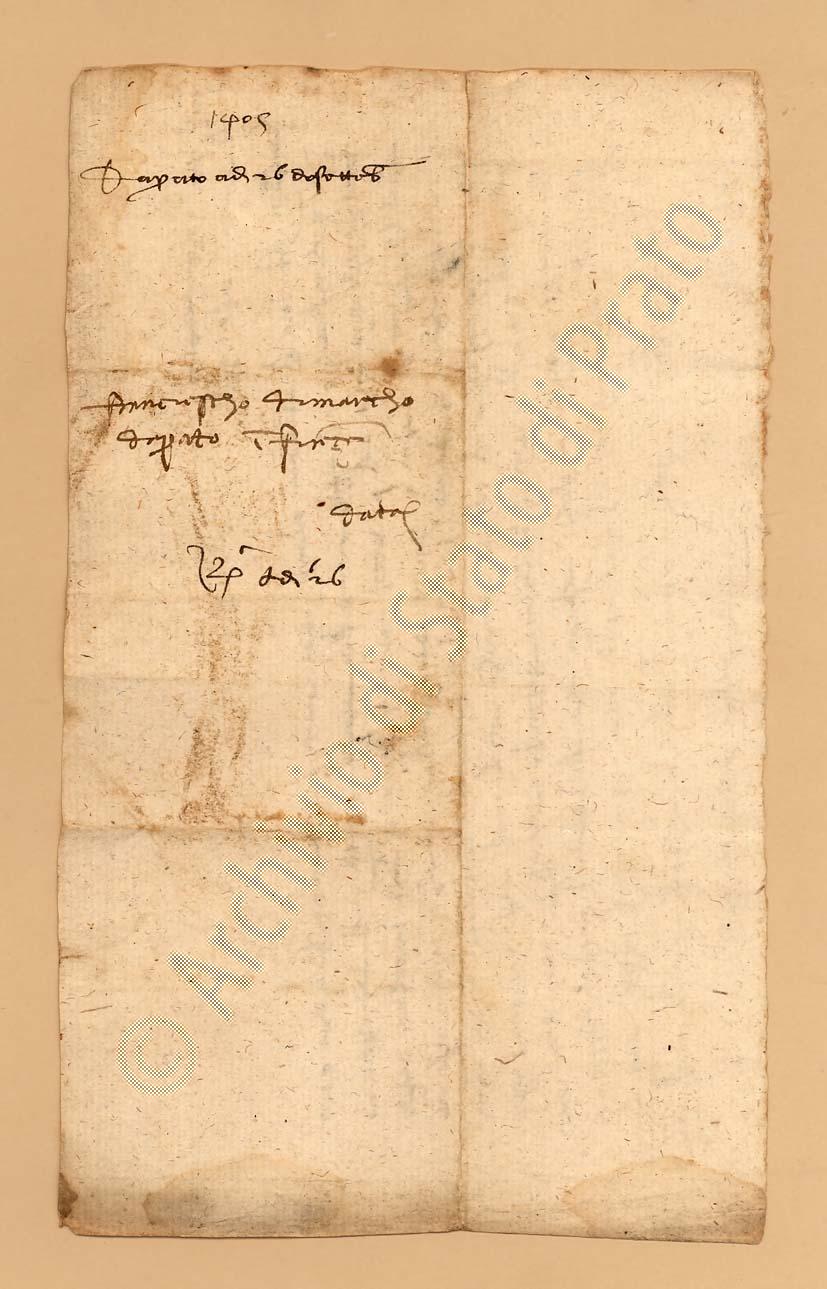 1405
Da prato adi 26 di settẽb
Francescho di marcho
da prato ĩ firẽze
data
adi 26
© Archivio di Stato di Prato